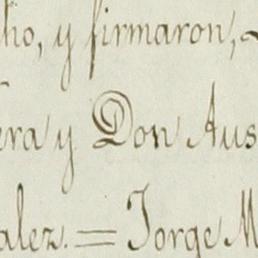 ho, y firmaron,
era y Don Aus
alez. = Jorge M